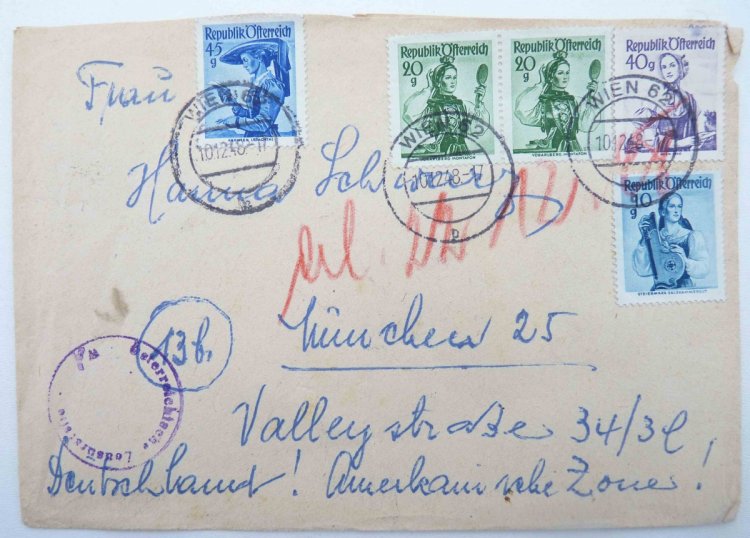 Republik Österreich
45 g
Republik Österreich
20 g
VORARLBERG MONTAFON
Republik Österreich
20 g
VORARLBERG MONTAFON
Republik Österreich
40 g
WIEN
Republik Österreich
10 g
STEIERMARK SALZKAMMERGUT
WIEN 62
10.12.48-17
b
WIEN 62
10.12.48-17
b
WIEN 62
10.12.48-17
Frau
Hanna
13b.
München 25
Valleystraße 34/3
Deutschland! Amerikanische Zone!
Österreichische Zensurstelle